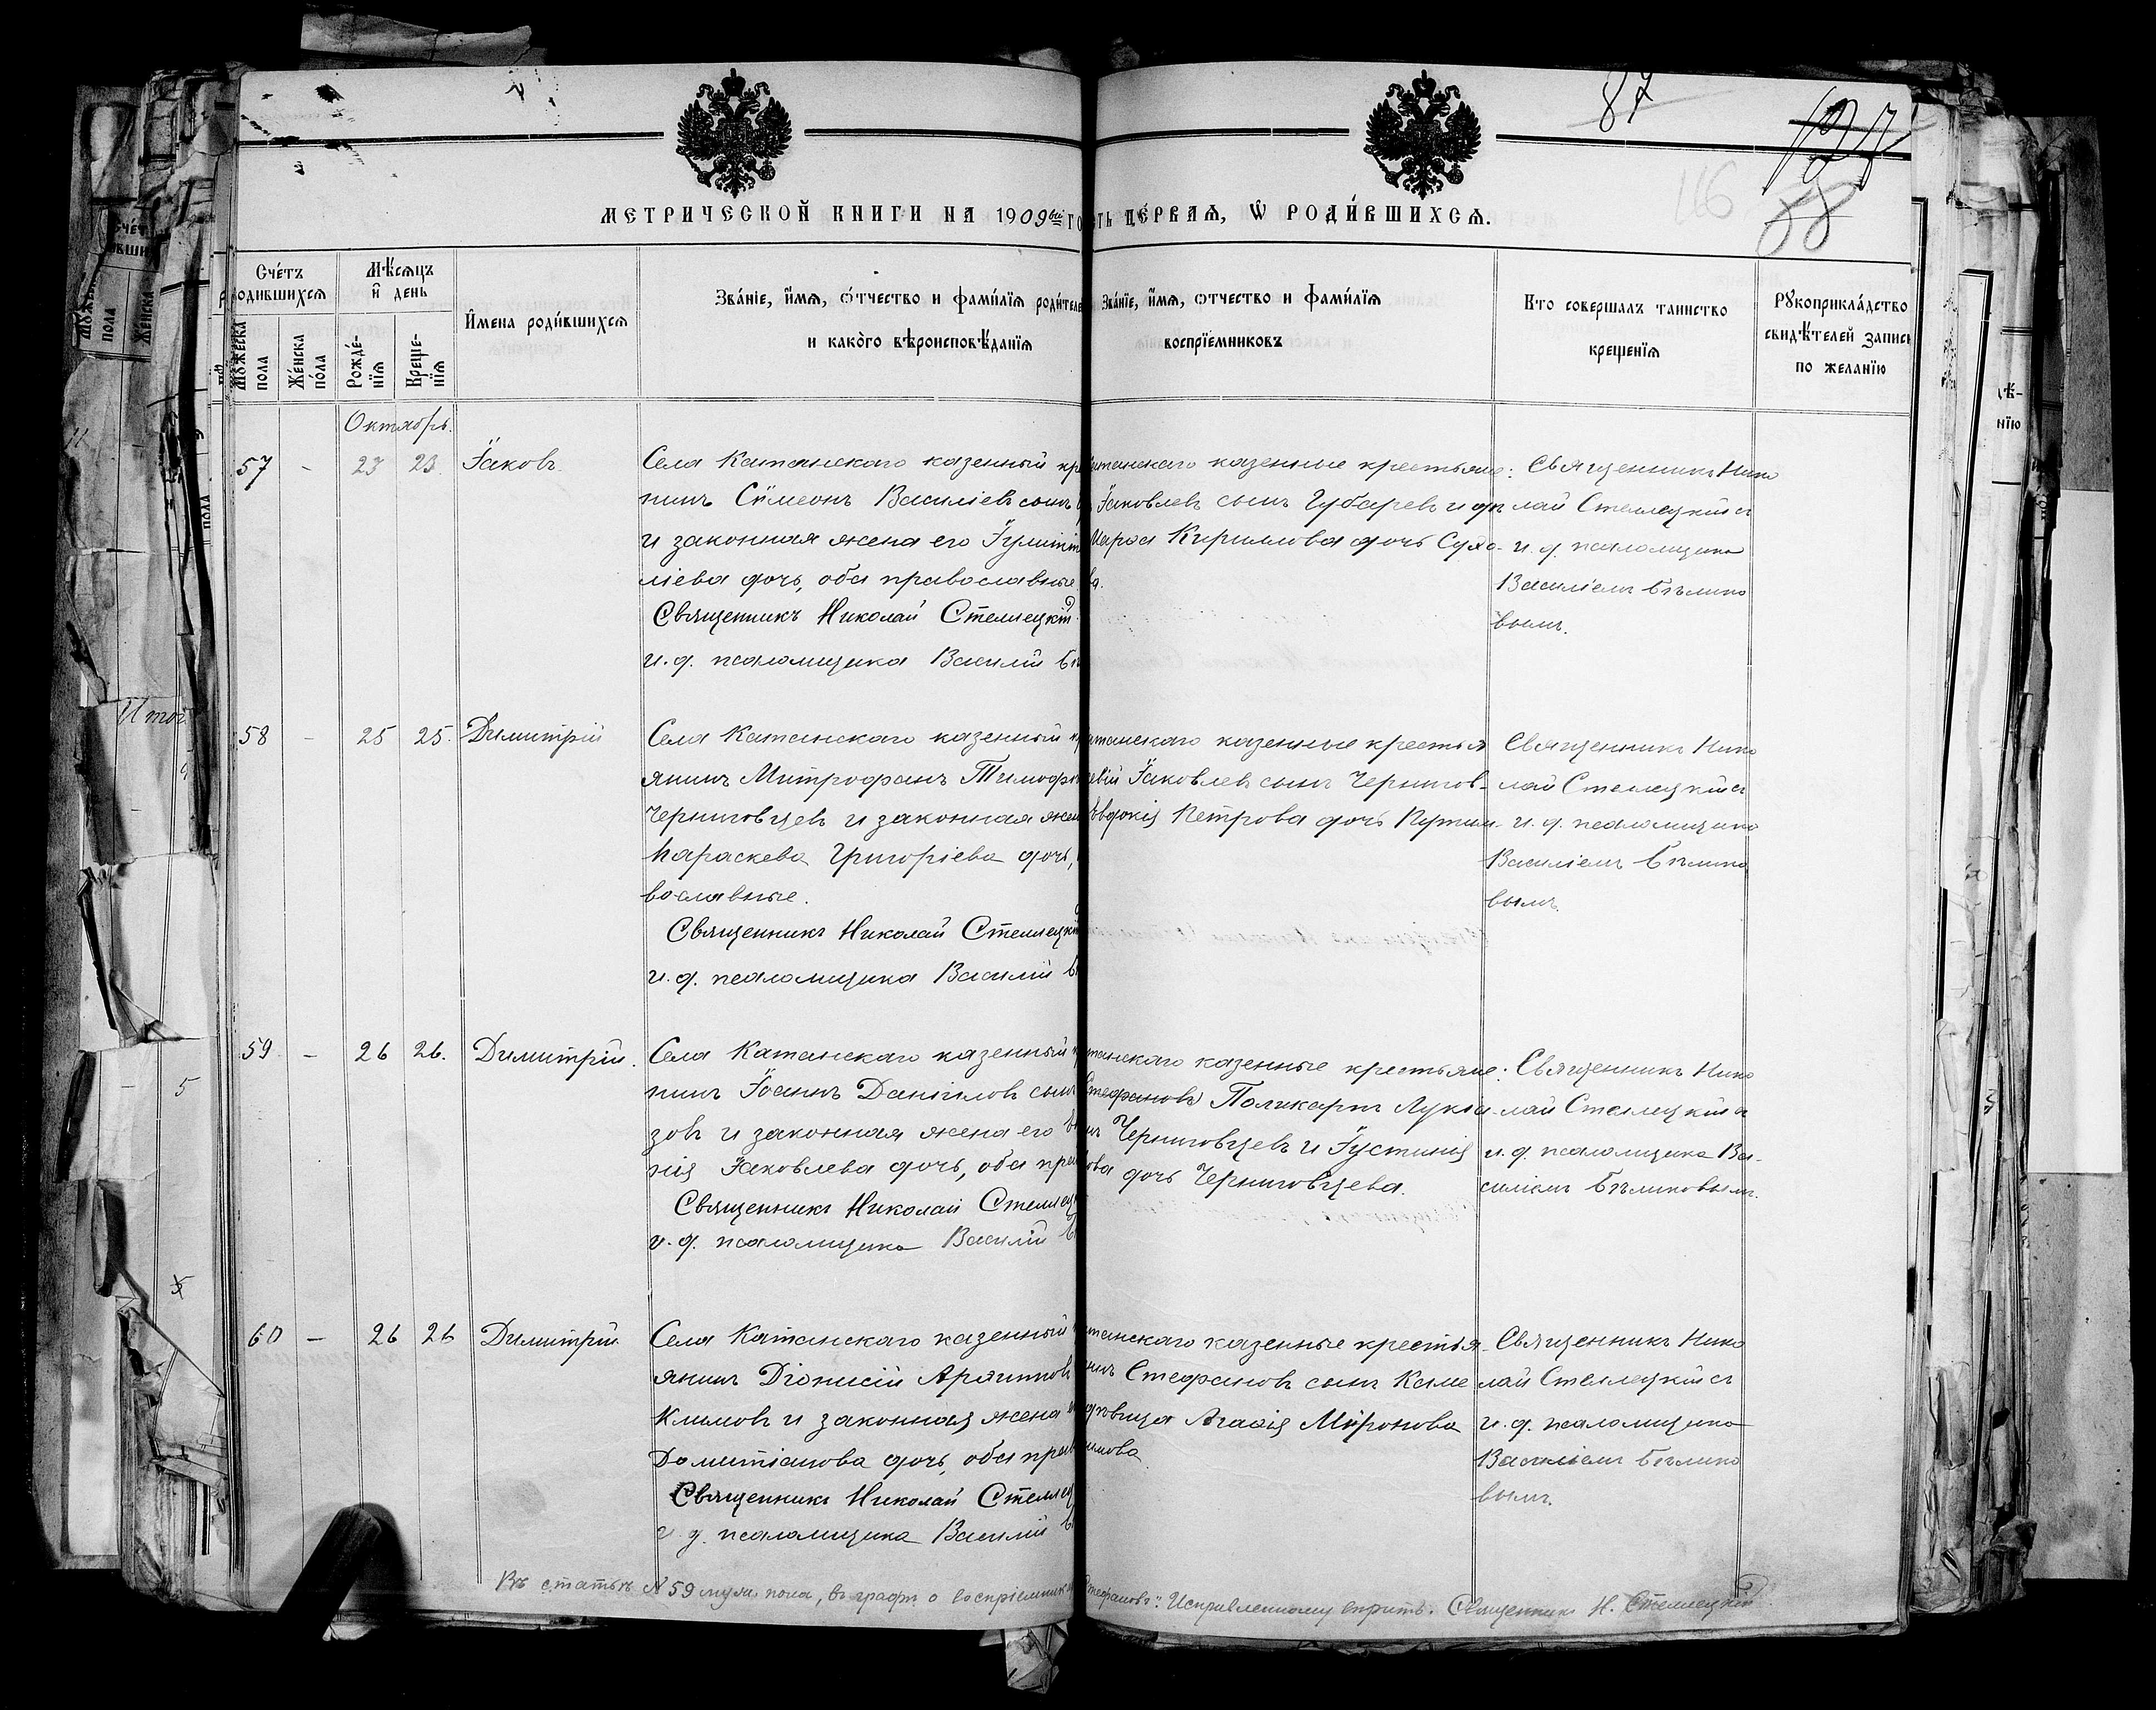 87
127
116
58
МЕТРИЧЕСКОЙ КНИГИ НА 1909ый ГО
СТЬ ПЕ́РВАѦ, Ѡ҆ РОДИ́ВШИХСѦ.
Сче́тъ родившихсѧ
Мѣ́сѧцъ и҆ день
Мꙋ́жеска пола
Же́нска по́ла
Рожде́-нїѧ
Креще-нїѧ
И҆мена роди́вшихсѧ
Зва́нїе, и҆́мѧ, ѻ҆́тчество и фами́лїѧ роди́теле
и како́го вѣроисповѣ́данїѧ
Зва́нїе, и҆́мѧ, ѻ҆тчество и фами́лїѧ
воспрїемниковъ
Кто совершалъ таинство
крещенїѧ
Рꙋкоприкла́дство
свидѣ́телей записи
по желанїю
Октябрь.
57 - 23 23. Іаковъ.
Села Каменскаго казенный кр
нинъ Сѵмеонъ Василіевъ сынъ
и законная жена его Іулитт
ліева дочь, оба православные
Священникъ Николай Стеллецкій
и. д. псаломщика Василій Бѣ
танскаго казенные крестьяне:
Іаковлевъ сынъ Губаревъ и дѣ
Марѳа Кириллова дочь Сухо-
ва.
Священникъ Нико
лай Стеллецкій съ
и. д. псаломщика
Василіемъ Бѣлико
вымъ.
58 - 25 25. Димитрій
Села Катанскаго казенный кр
янинъ Митрофанъ Тимофѣ
Черниговцевъ и законная жен
Параскева Григоріева дочь,
вославные.
Священникъ Николай Стеллецкій
и. д. псаломщика Василій Бѣ
танскаго казенные крестья
евій Іаковлевъ сынъ Чернигов-
Евдокія Петрова дочь Путили-
Священникъ Нико
лай Стеллецкій съ
и. д. псаломщика
Василіемъ Бѣлико
вымъ.
59 - 26 26. Димитрій.
Села Катанскаго казенный к
нинъ Іоаннъ Даніиловъ сынъ
зовъ и законная жена его
нія Іаковлева дочь, оба пра
Священникъ Николай Стеллец
и. д. псаломщика Василій Б
танскаго казенные крестьяне:
Стефановъ Поликарпъ Лукіа-
нъ Черниговцевъ и Іустинія
ова дочь Черниговцева.
Священникъ Нико
лай Стеллецкій съ
и. д. псаломщика Ва-
силіемъ Бѣликовымъ.
60 - 26 26 Димитрій.
Села Катанскаго казенный
янинъ Діонисій Архипповъ
Климовъ и законная жена
Домитіанова дочь, оба прав
Священникъ Николай Стеллец
и. д. псаломщика Василій Б
танскаго казенные крестья-
нъ Стефановъ сынъ Климо
дѣвица Агаѳія Мѵронова
имова
Священникъ Нико
лай Стеллецкій съ
и. д. псаломщика
Василіемъ Бѣлико
вымъ.
Въ статьѣ № 59 муж. пола, въ графѣ о воспріемник
Стефановъ". Исправленному вѣрить. Священникъ Н. Стеллецкій